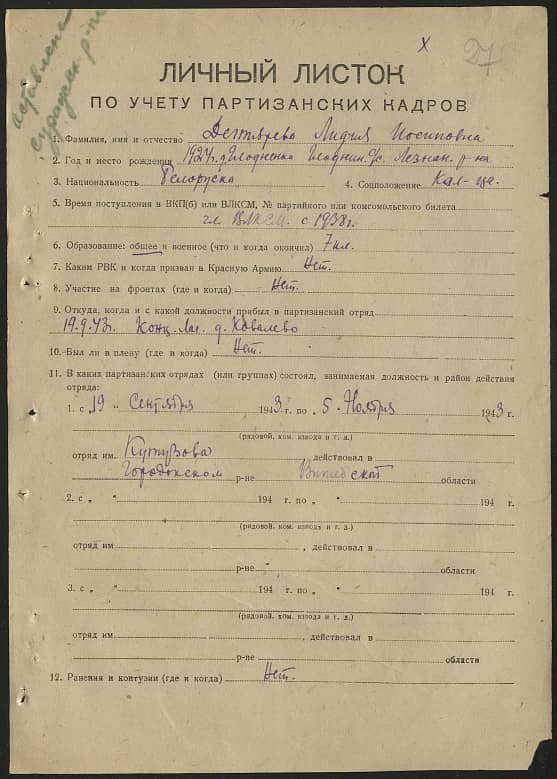 х 27
ЛИЧНЫЙ ЛИСТОК
ПО УЧЕТУ ПАРТИЗАНСКИХ КАДРОВ
1. Фамилия, имя и отчество Дегтярева Лидия Иосиповна
2. Год и место рождения 1924г. д. с/с. Лезнан. р-на
3. Национальность Белоруска 4. Соцположение Кол-ца.
5. Время поступления в ВКП(б) или ВЛКСМ, № партийного или комсомольского билета
чл. ВЛКСМ. с 1938г.
6. Образование: общее и военное (что и когда окончил) 7 кл.
7. Каким РВК и когда призван в Красную Армию Нет.
8. Участие на фронтах (где и когда) Нет.
9. Откуда, когда и с какой должности прибыл в партизанский отряд
19.9.43г. Конц. лаг. д. Ковалево
10. Был ли в плену (где и когда) Нет.
11. В каких партизанских отрядах (или группах) состоял, занимаемая должность и район действия
отряда:
1. с „19„ Сентября 1943 г. по „5„ Ноября 1943 г.
(рядовой, ком. взвода и т. д.)
отряд им. Кутузова действовал в
Городокском р-не Витебской области
2. с „ “ 194 г. по „ “ 194 г.
(рядовой, ком. взвода и т. д.)
отряд им. , действовал в
р-не области
3. с „ “ 194 г. по „ “ 194 г.
(рядовой, ком. взвода и т. д.)
отряд им. , действовал в
р-не области
12. Ранения и контузии (где и когда) Нет.